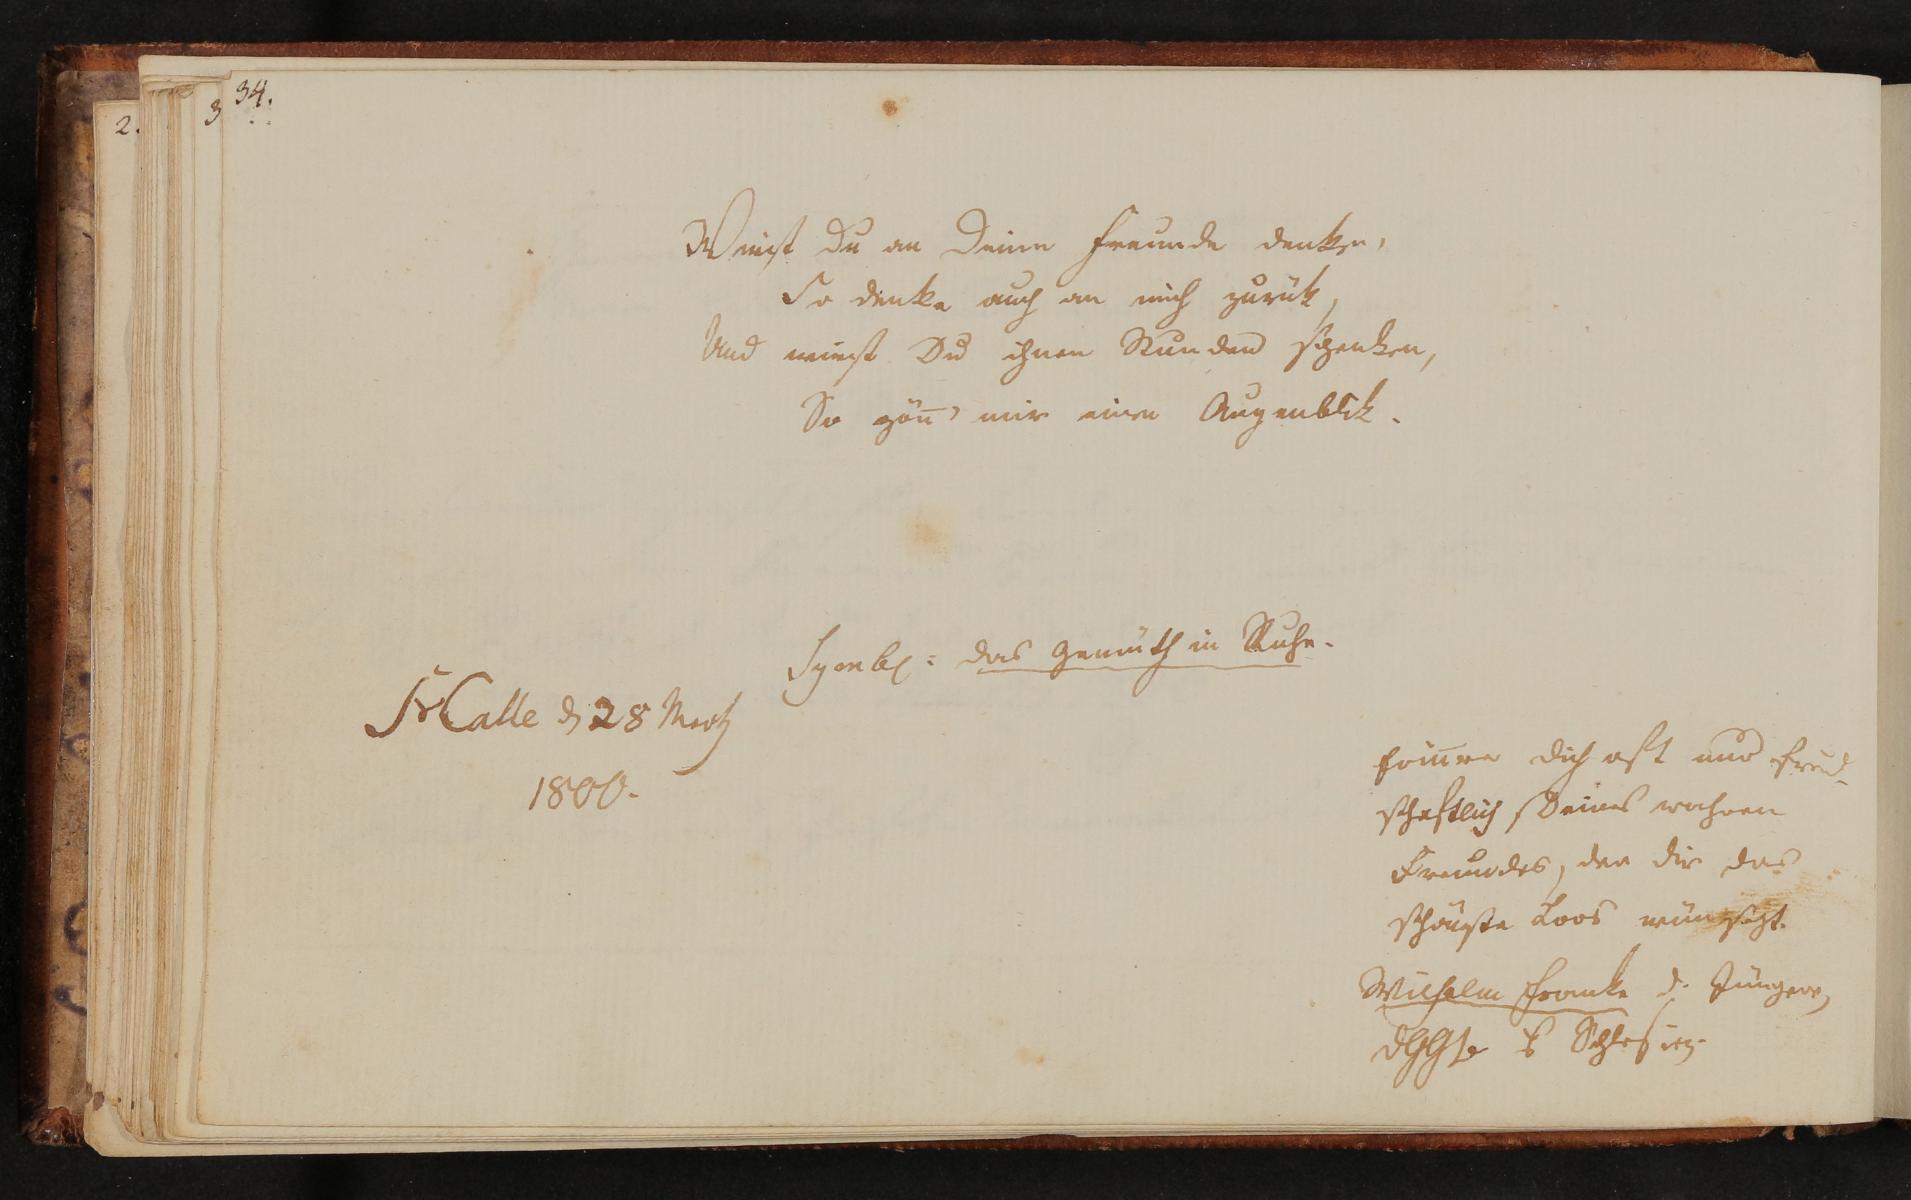 34.
2.
3
Wirst Du an Deine Freunde denken,
So denke auch an mich zurük,
Und wirst Du ihnen Stunden schenken,
So gön̄' mir einen Augenblik.
Symb: das Gemüth in Ruhe.
Halle d 28 Mertz
1800.
Erin̄re Dich oft und freud-
schaftlich Deines wahren
Freundes, der dir das
schönste Loos wünscht.
Wilhelm Franke d. Jüngere,
d G G B a Schlesien.